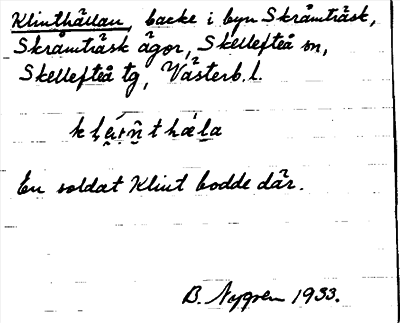 Klinthällan, backe i byn Skråmträsk,
Skråmträsk ägor, Skellefteå sn,
Skellefteå tg, Västerb. l.
En soldat Klint bodde där.
B. Nygren 1933.